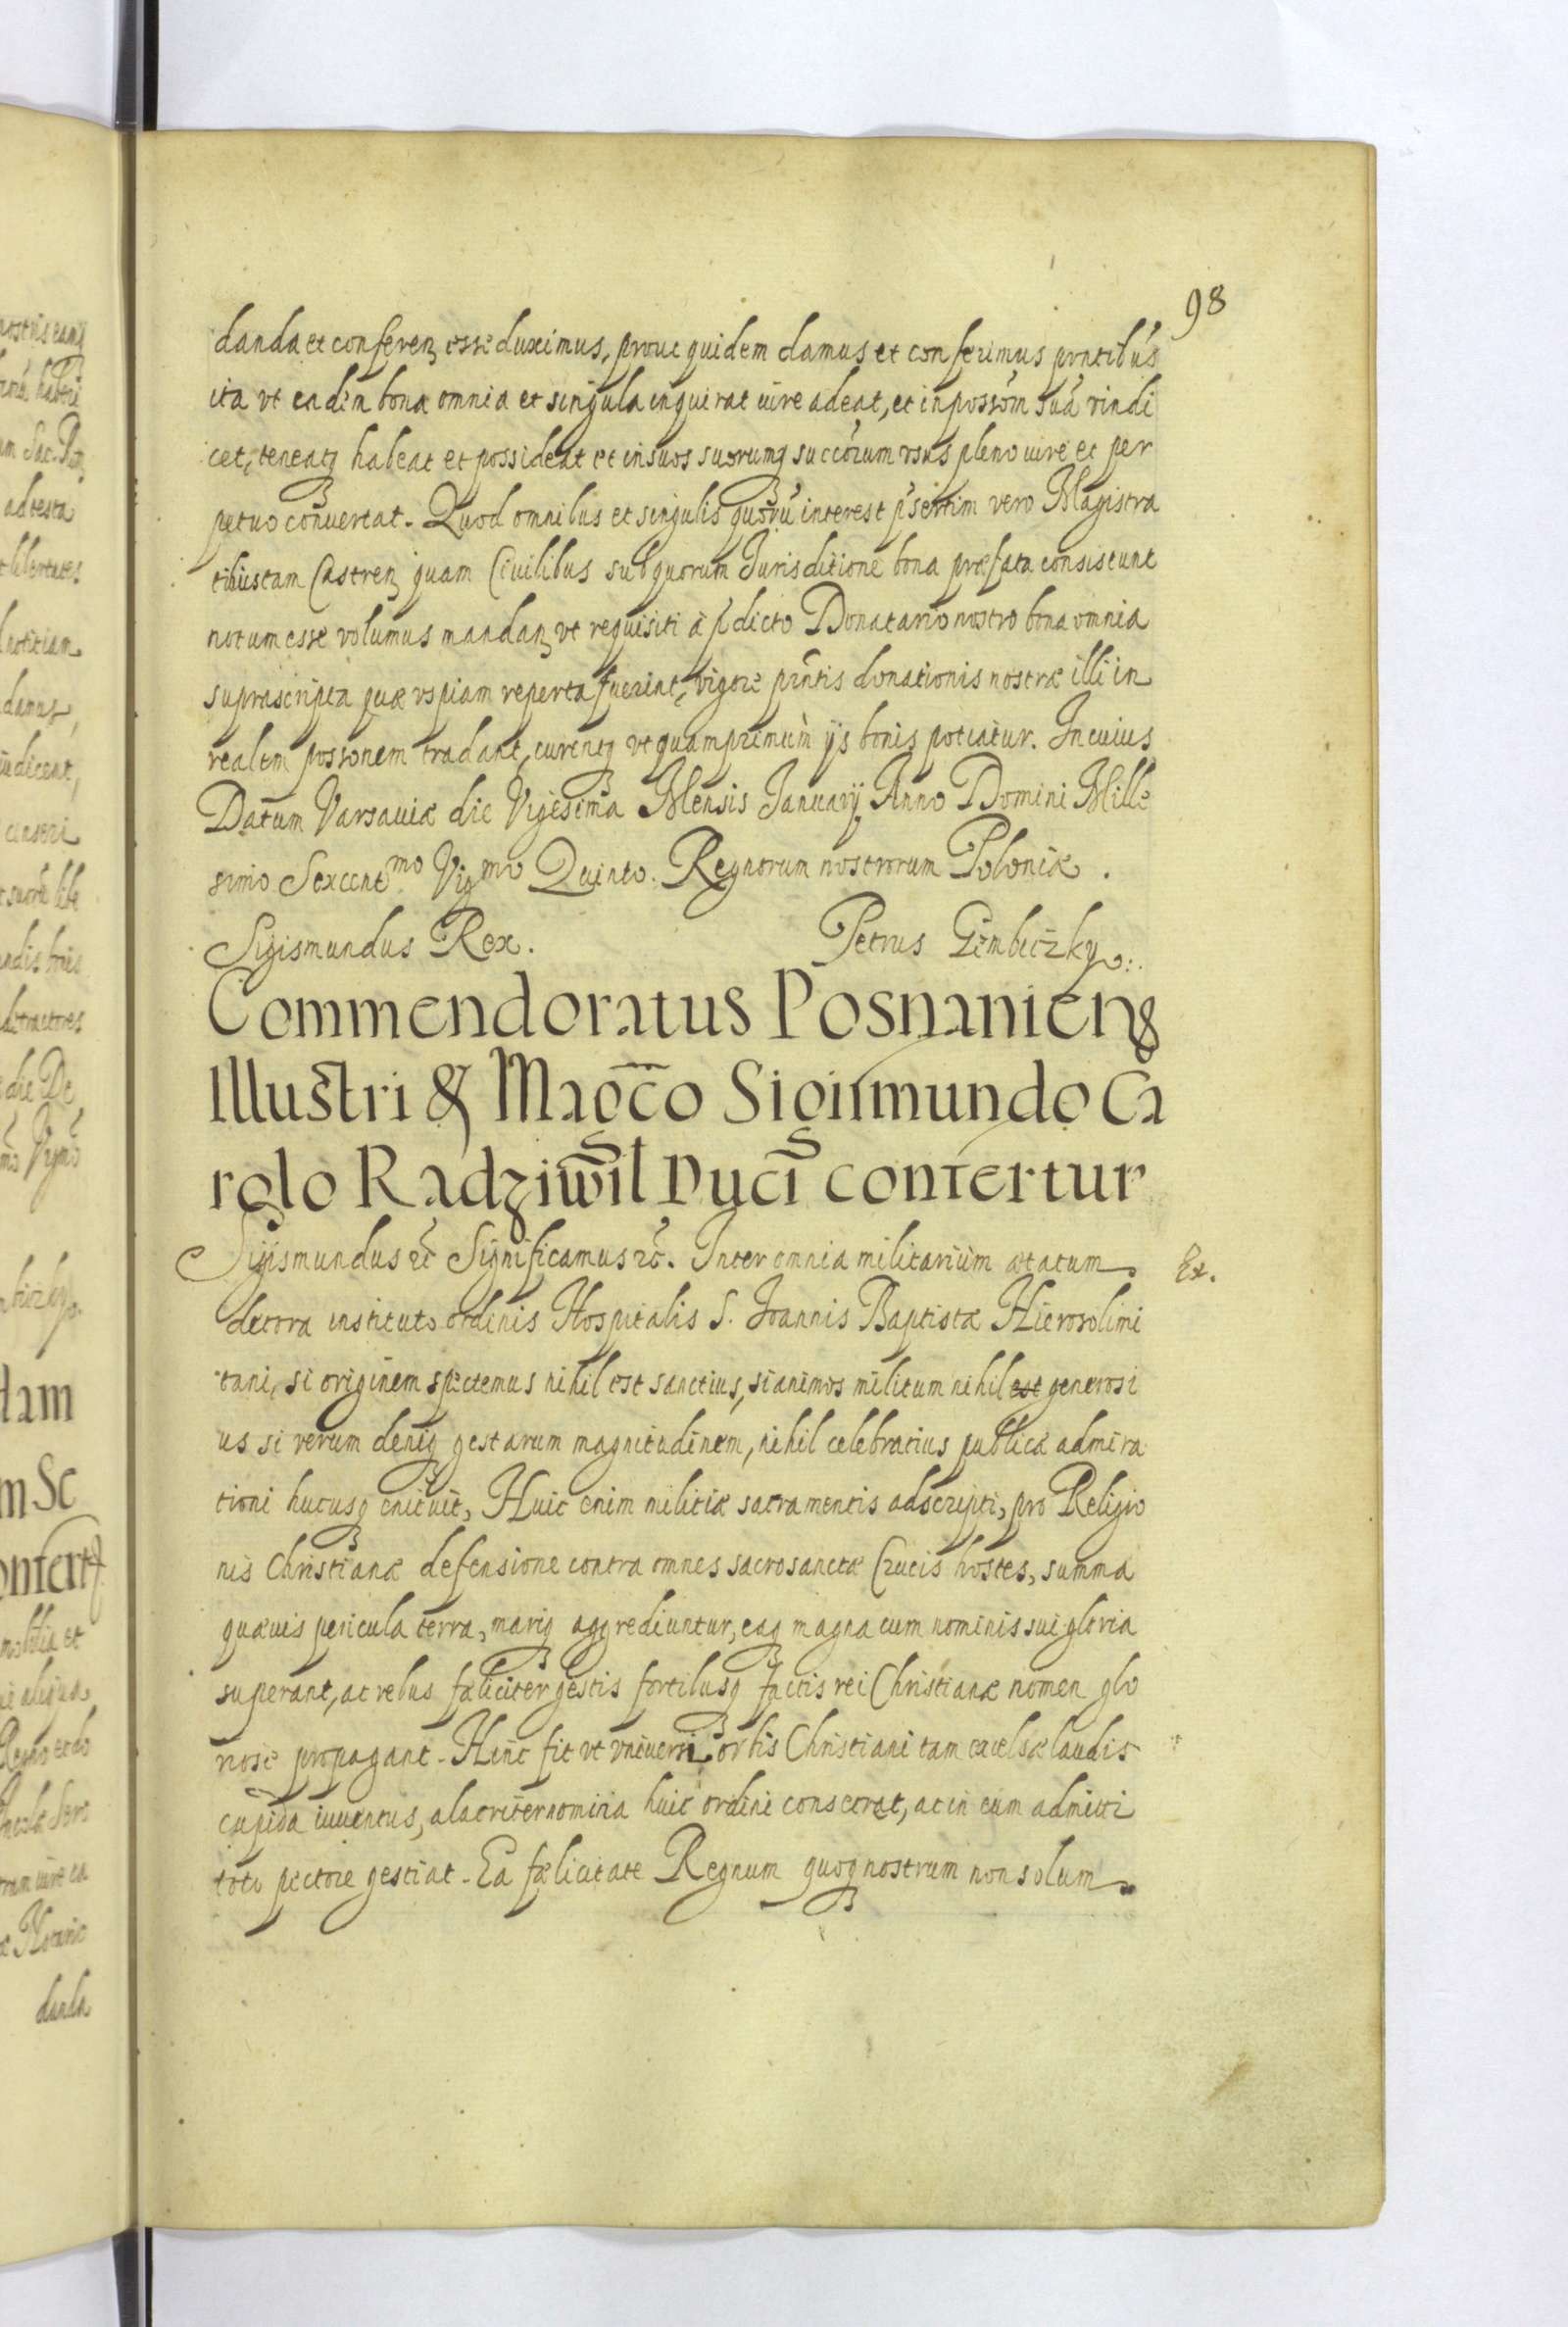 98
danda et conferen₃ esse duximus, prout quidem damus et conferimus pntibus
ita vt eadem bona omnia et singula inquirat iure adeat, et in possom̃ suã vindi
cet, teneatq₃ habeat et possideat et in suos suorumq₃ succõrum vsus pleno iure et per
petuo conuertat. Quod omnibus et singulis quorũ interest p̃sertim vero Magistra
tibus tam Castren₃ quam Ciuilibus sub quorum Jurisditione bona præfata consistunt
notum esse volumus mandan₃ vt requisiti à p̃dicto Donatario nostro bona omnia
suprascripta quæ vspiam reperta fuerint, vigore pñtis donationis nostræ illi in
realem possonem tradant, curentq₃ vt quamprimum ijs bonis potiatur. In cuius
Datum Varsauiæ die Vigesima Mensis Januarij Anno Domini Mille
simo Sexcentmo Vigmo Quinto. Regnorum nostrorum Poloniæ.
Sigismundus Rex. Petrus Gembiczky
Commendoratus Posnanien₃
Illustri & Mag̃co Sigismundo Ca
rolo Radziwil Duci confertur
Sigismundus &c̃ Significamus &c̃. Inter omnia militarium ætatum
Ex.
decora instituto ordinis Hospitalis S. Joannis Baptistæ Hierosolimi
tani, si originem spectemus nihil est sanctius, si animos militum nihil est generosi
us si rerum deniq₃ gestarum magnitudinem, nihil celebratius publicæ admira
tioni hucusq₃ enituit, Huic enim militiæ sacramentis adscripti, pro Religio
nis Christianæ defensione contra omnes sacrosanctæ Crucis hostes, summa
quæuis pericula terra, mariq₃ aggrediuntur, eaq₃ magna cum nominis sui gloria
superant, ac rebus fæliciter gestis fortibusq₃ factis rei Christianæ nomen glo
riose propagant. Hinc fit vt vniuersi orbis Christiani tam excelsæ laudis
cupida iuuentus, alacriter nomina huic ordini consecrat, ac in eum admitti
toto pectore gestiat. Ea fælicitate Regnum quoq₃ nostrum non solum